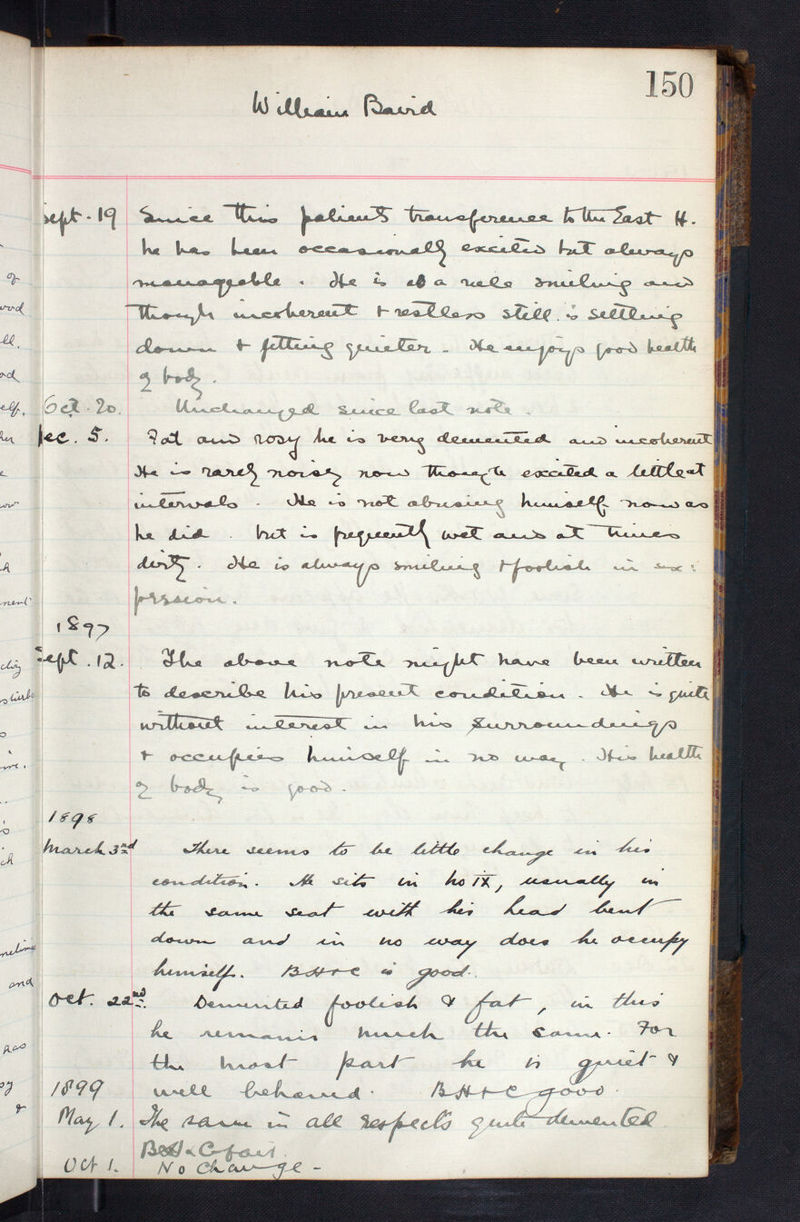 150
William Baird
Sept. 19 Since this patients transference to the East H.
he has been occasionally excited but always
manageable. He is as a rule smiling and
though incoherent & restless still is settling
down & getting quieter. He enjoys good health
of body.
Oct. 20. Unchanged since last note.
Dec. 5. Fat and rosy he is very demented and incoherent
He is rarely noisy now though excited a little at
intervals. He is not abusing himself now as
he did. but is frequently wet and at times
dirty. He is always smiling & foolish in ex:
pression.
1897
Sept. 12. The above note might have been written
to describe his present condition. He is quite
without interest in his surroundings
& occupies himself in no way. His health
of body is good.
1898
March 3nd There seems to be little change in his
condition. He sits in No IX, usually in
the same seat with his head bent
down and in no way does he occupy
himself. BH&C is good.
Oct. 22nd. Demented foolish & fat, in this
he remains much the same. For
the most part he is quiet &
1899 well behaved. BH&C good.
May 1. The same in all respects quite demented
BH&C fair.
Oct 1. No Change -